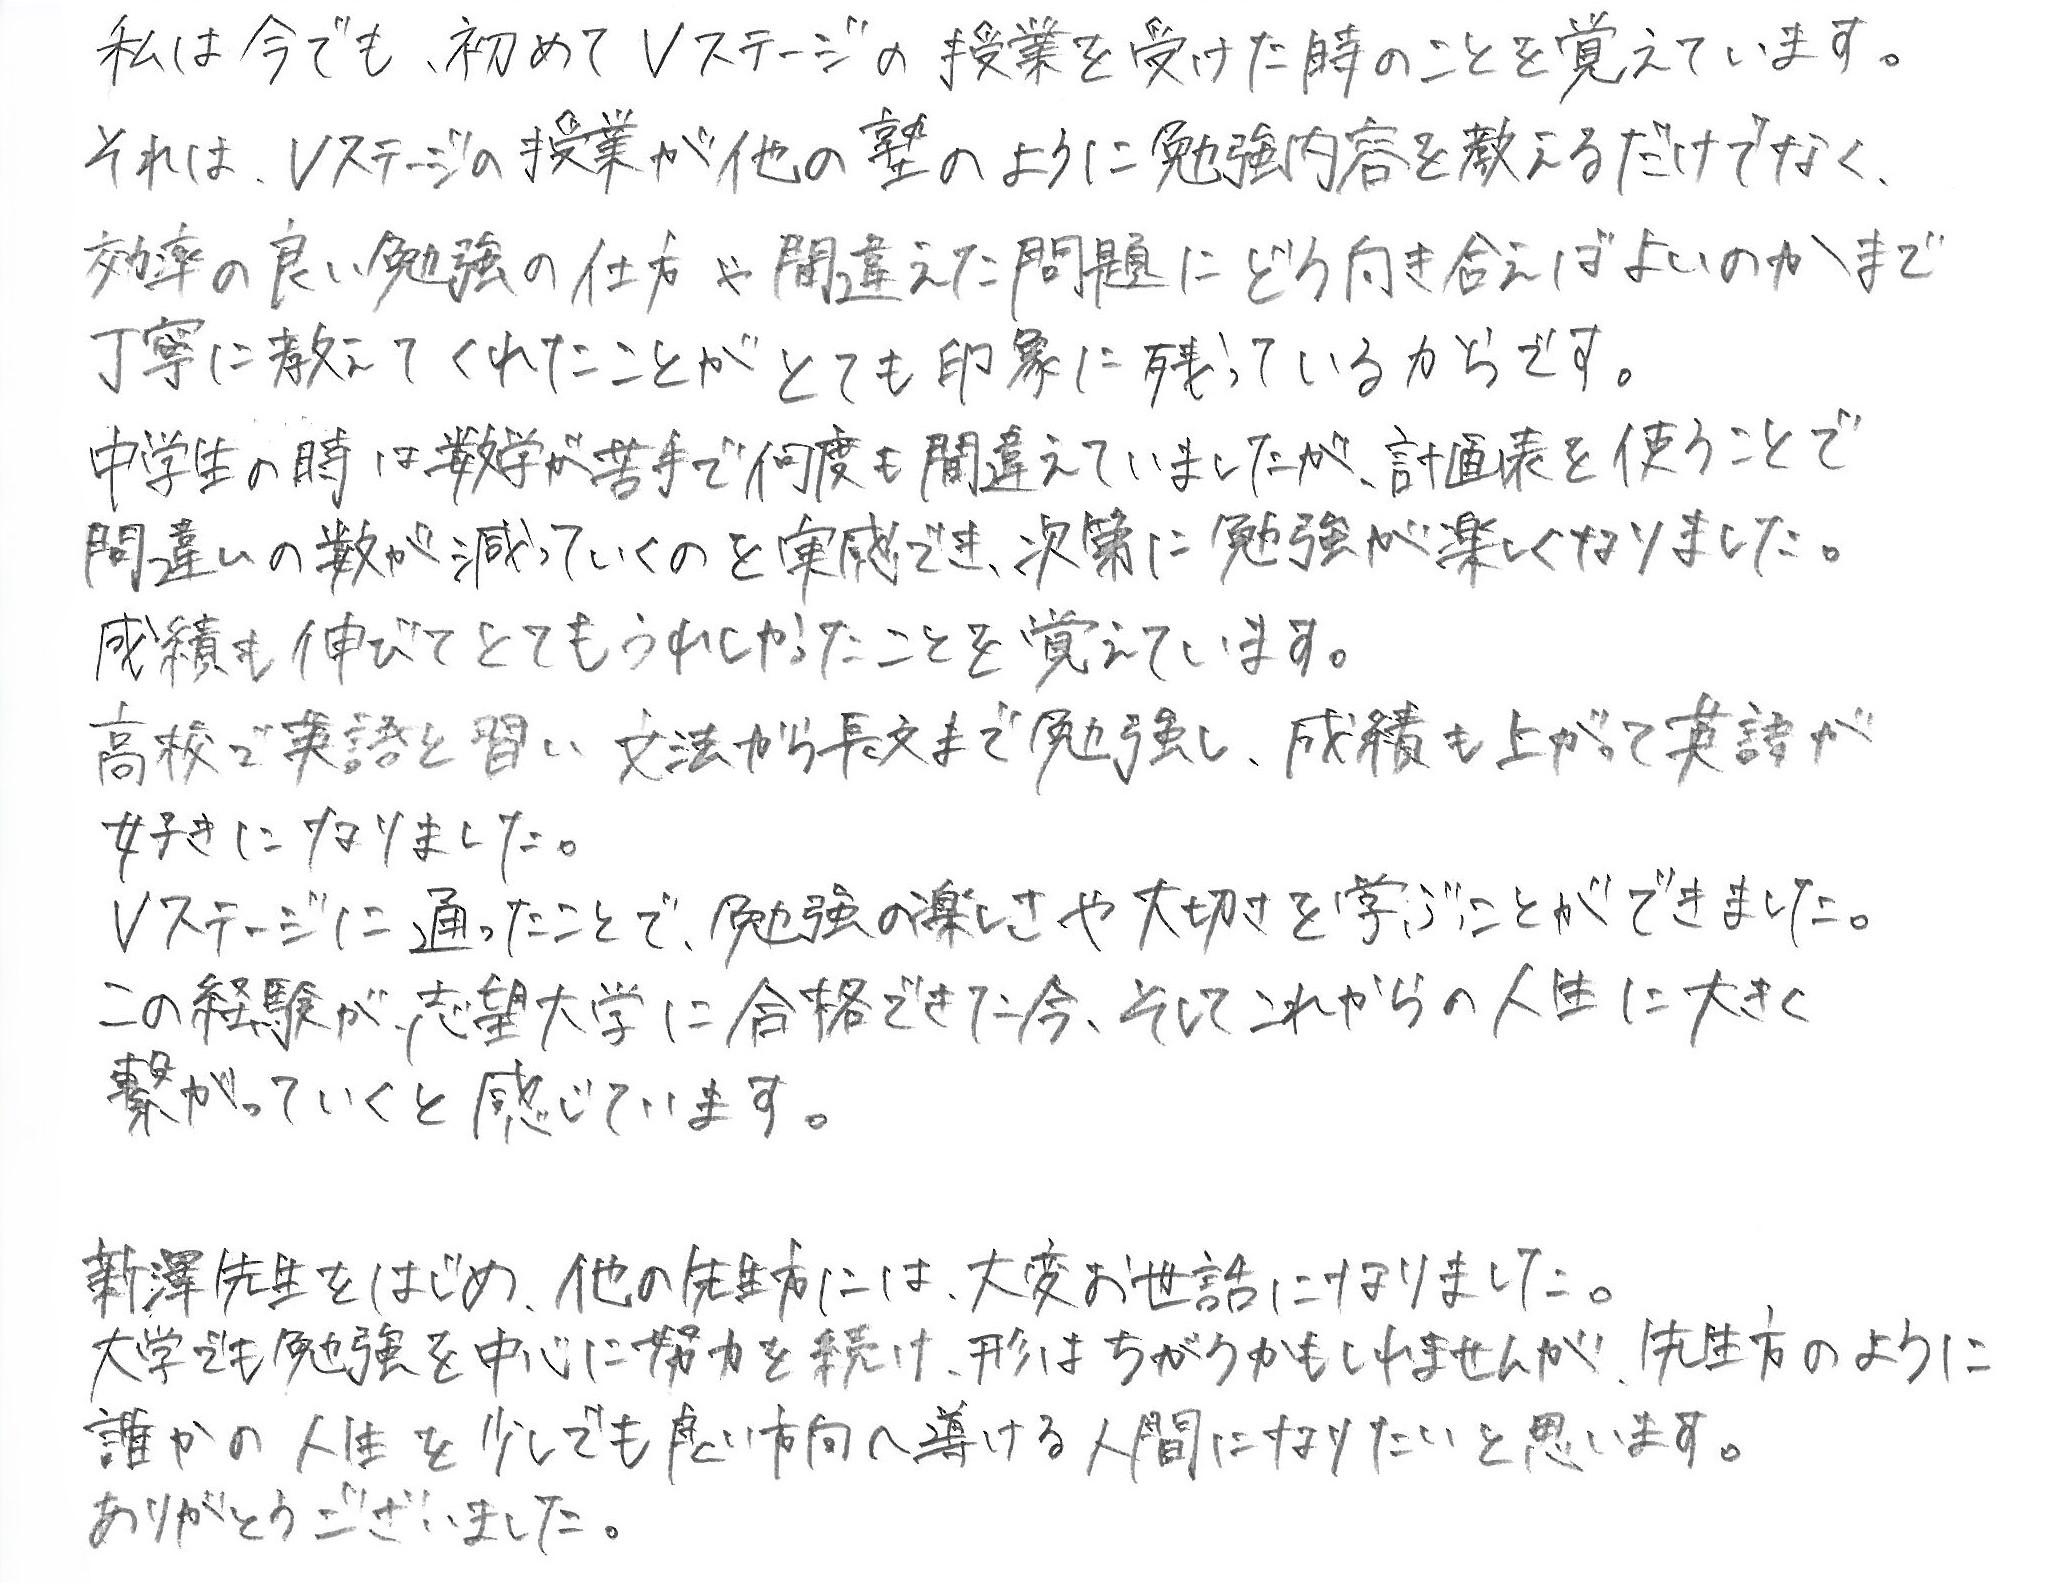 私は今でも、初めてVステージの授業を受けた時のことを覚えています。
それは、Vステージの授業が他の塾のように勉強内容を教えるだけでなく、
効率の良い勉強の仕方や間違えた問題にどう向き合えばよいのかまで
丁寧に教えてくれたことがとても印象に残っているからです。
中学生の時は数学が苦手で何度も間違えていましたが、計画表を使うことで
間違いの数が減っていくのを実感でき、次第に勉強が楽しくなりました。
成績も伸びてとてもうれしかったことを覚えています。
高校で英語を習い文法から長文まで勉強し、成績も上がって英語が
好きになりました。
Vステージに通ったことで、勉強の楽しさや大切さを学ぶことができました。
この経験が、志望大学に合格できた今、そしてこれからの人生に大きく
繋がっていくと感じています。
新澤先生をはじめ、他の先生方には、大変お世話になりました。
大学でも勉強を中心に努力を続け、形はちがうかもしれませんが、先生方のように
誰かの人生を少しでも良い方向へ導ける人間になりたいと思います。
ありがとうございました。